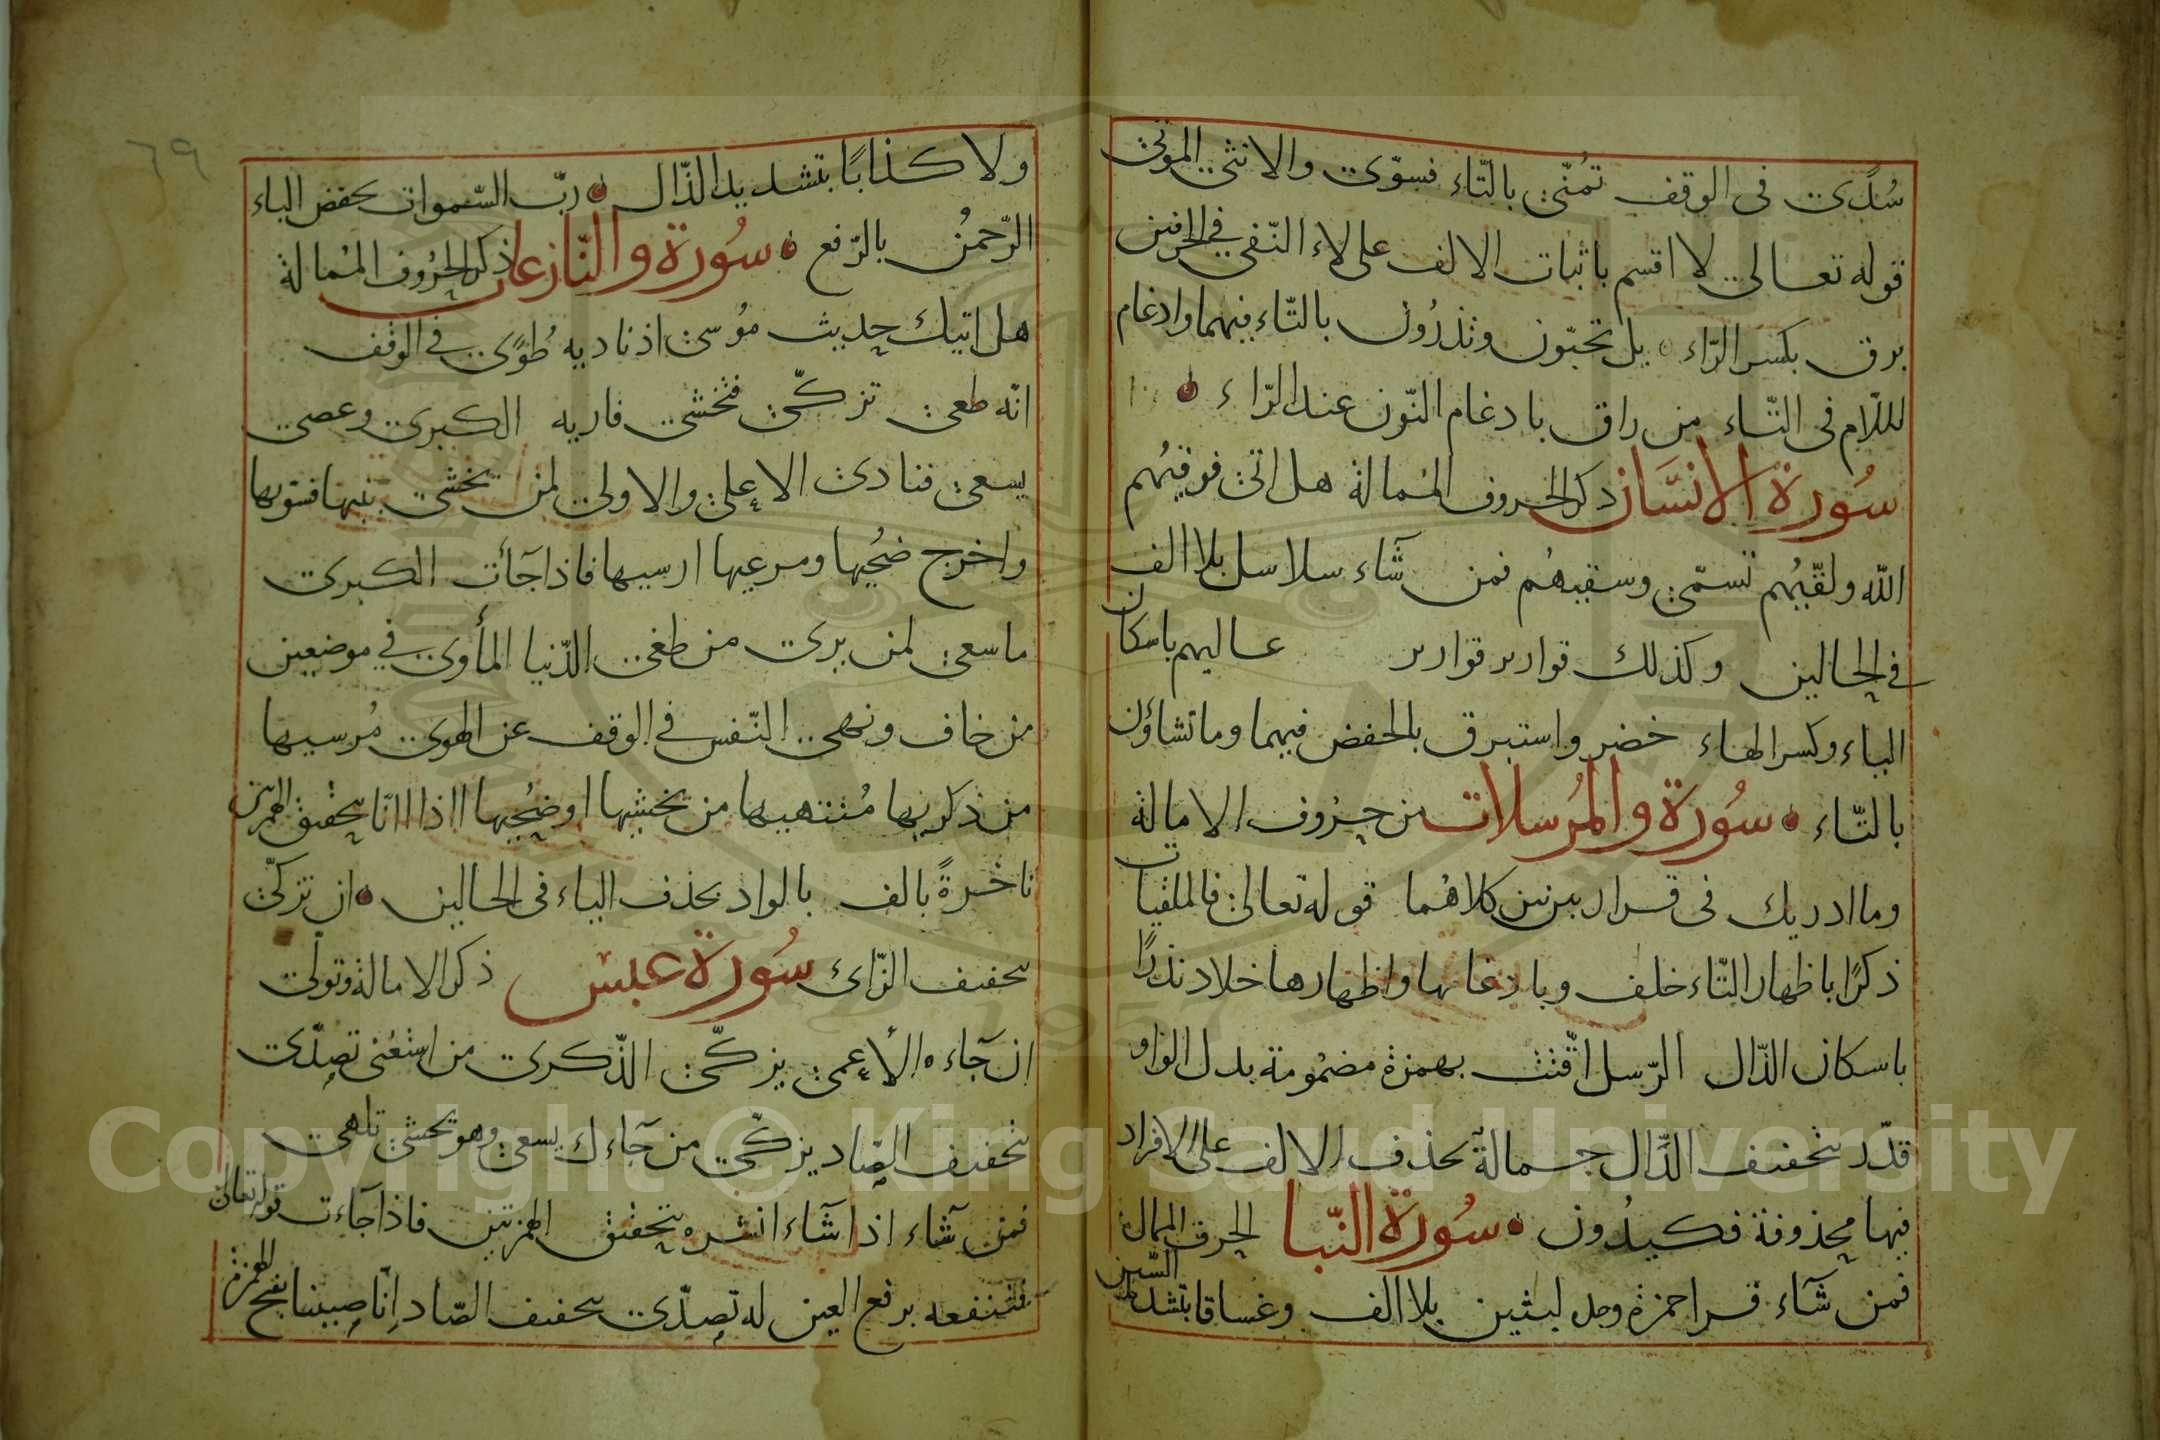 سُدًى في الوقف تُمنّى بالتّاء فسوّى والانثى الموتى
قوله تعالى لا اقسم باثبات الالف على لاء النّفي في الحرفين
برق بكسر الرّاء بل تحبّون وتذرُون بالتّاء فيهما وادغام
للّلام في التّاء من راق بادغام النّون عند الرّاء
سُورة الانسَان ذكر الحروف المُمالة هل اتى فوقيهُم
الله ولقّيهُم تسمّى وسقيهُم فمن شآء سلاسل بلا الف
في الحالين وكذلك قوارير قوارير عاليهم باسكان
الياء وكسر الهاء خضر واستبرق بالخفض فيهما وما تشاؤن
بالتّاء سُورة والمُرسلات من حروف الامالة
وما ادريك في قرار بين بين كلاهُما قوله تعالى فالملقيات
ذكرًا باظهار التّاء خلف وبادغامها واظهارها خلاد نذرًا
باسكان الذّال الرّسل اقّتت بهمزة مضمُومة بدل الواو
قدّر بتخفيف الدّال جمالة بحذف الالف على الافراد
فيها محذوفة فكيدُون سُورة النّبا الحرف الممال
فمن شآء قرا حمزة وحده لبثين بلا الف وغساقا بتشديد السّين
ولا كذابًا بتشديد الذّال ربّ السّموات بخفض الباء
الرّحمنُ بالرّفع سُورة والنّازعات ذكر الحرُوف المُمالة
هل اتيك حديث مُوسى اذ ناديه طُوًى في الوقف
انّه طغى تزكّى فتخشى فاريه الكبرى وعصى
يسعى فنادى الاعلى والاولى لمن يخشى بنيها فسويها
واخرج ضُحيها ومرعيها ارسيها فاذا جآءت الكبرى
ما سعى لمن يرى من طغى الدّنيا المأوى في موضعين
من خاف ونهى النّفس في الوقف عن الهوى مُرسيها
من ذكريها مُنتهيها من يخشيها او ضُحيها ااذا اانّا بتحقيق الهمزتين
ناخرةً بالف بالواد بحذف الياء في الحالين ان تزكّى
بتخفيف الزّاي سُورة عبس ذكر الامالة وتولّى
ان جآءه الأعمى يزكّى الذّكرى من استغنى تصدّى
بتخفيف الصّاد يزكّى من جآءك يسعى وهو يخشى تلهى
فمن شآء اذا شآء انشره بتحقيق الهمزتين فاذا جآءت قوله تعالى
فتنفعه برفع العين له تصدّى بتخفيف الصّاد انّا صببنا بفتح الهمزة
٦٩
Copyright © King Saud University
1957